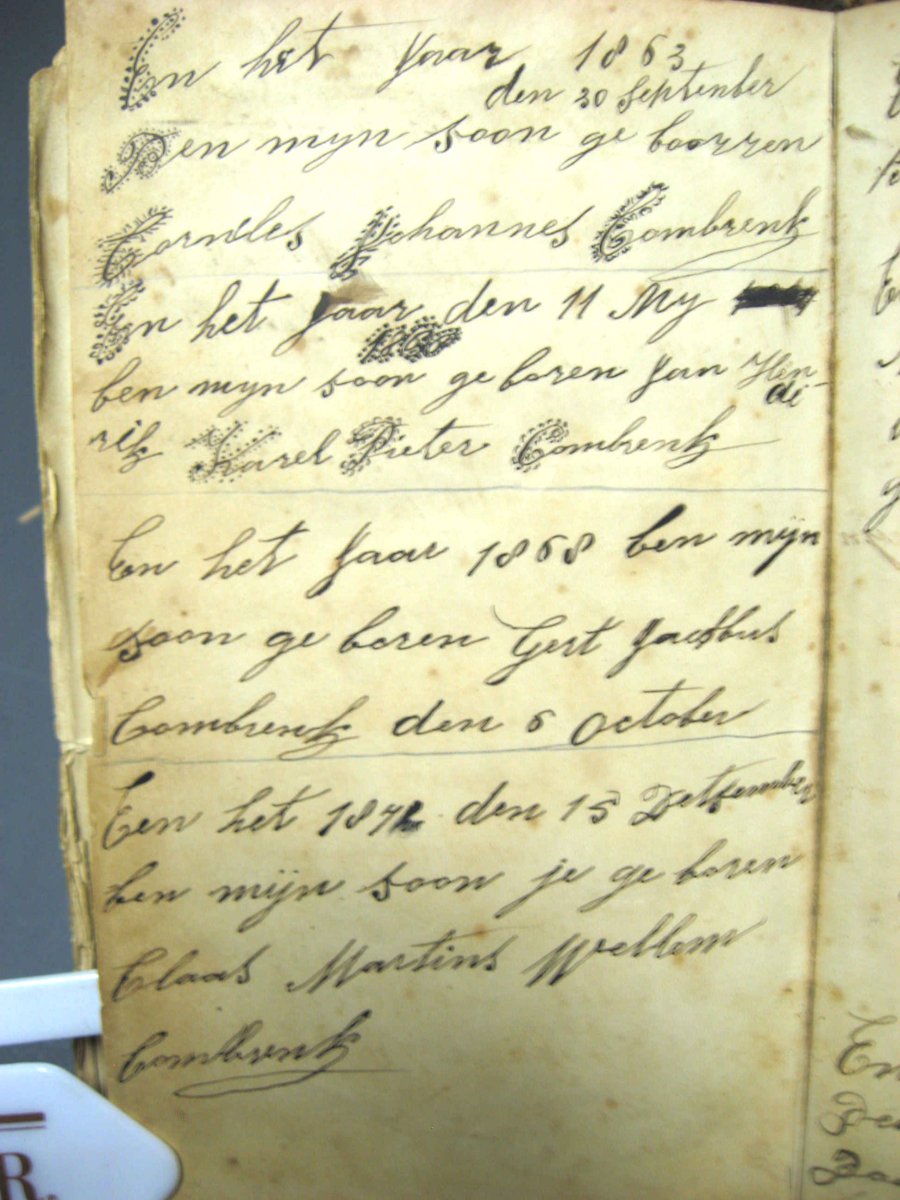 En het Jaar 1863
den 30 September
Ben mijn soon ge boorren
Corneles Johannes Combrenk
En het Jaar den 11 My
ben myn soon ge boren Jan Hen
di
rik Karel Pieter Combrenk
En het Jaar 1868 ben mijn
soon ge boren Gert Jacobus
Combrenk den 6 October
Een het den 15 Detsember
ben mijn soon je ge boren
Claas Martins Wellem
Combrenk
R.